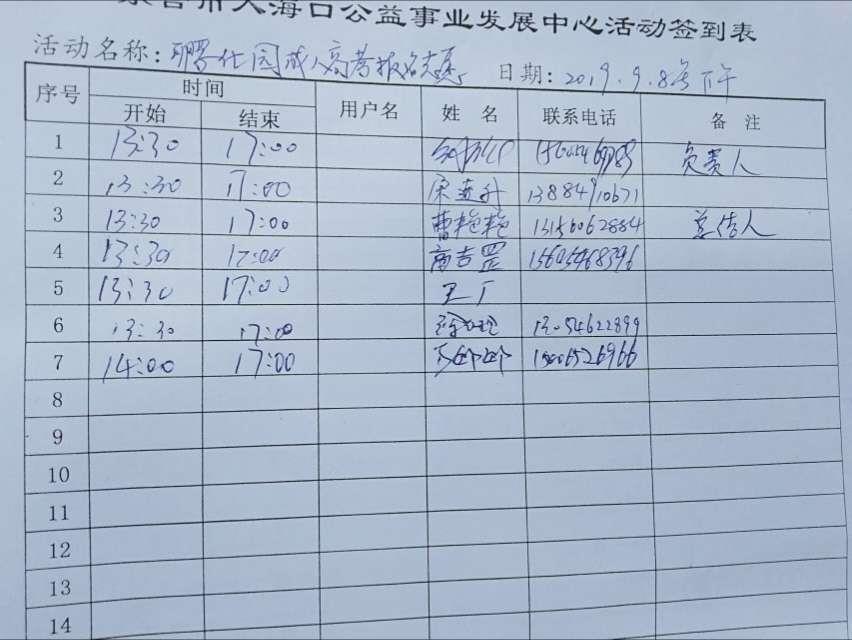 市大海口公益事业发展中心活动签到表
活动名称: 成人高考报名志愿 日期: 2019.9.8号下午
序号 时间 用户名 姓名 联系电话 备注
开始 结束
1 13:30 17:00 负责人
2 13:30 17:00 宋连升 13884910671
3 13:30 17:00 曹艳艳 13156062884 总结人
4 13:30 17:00 商吉罡 15605468396
5 13:30 17:00
6 13:30 17:00 13054622899
7 14:00 17:00 15006526966
8
9
10
11
12
13
14